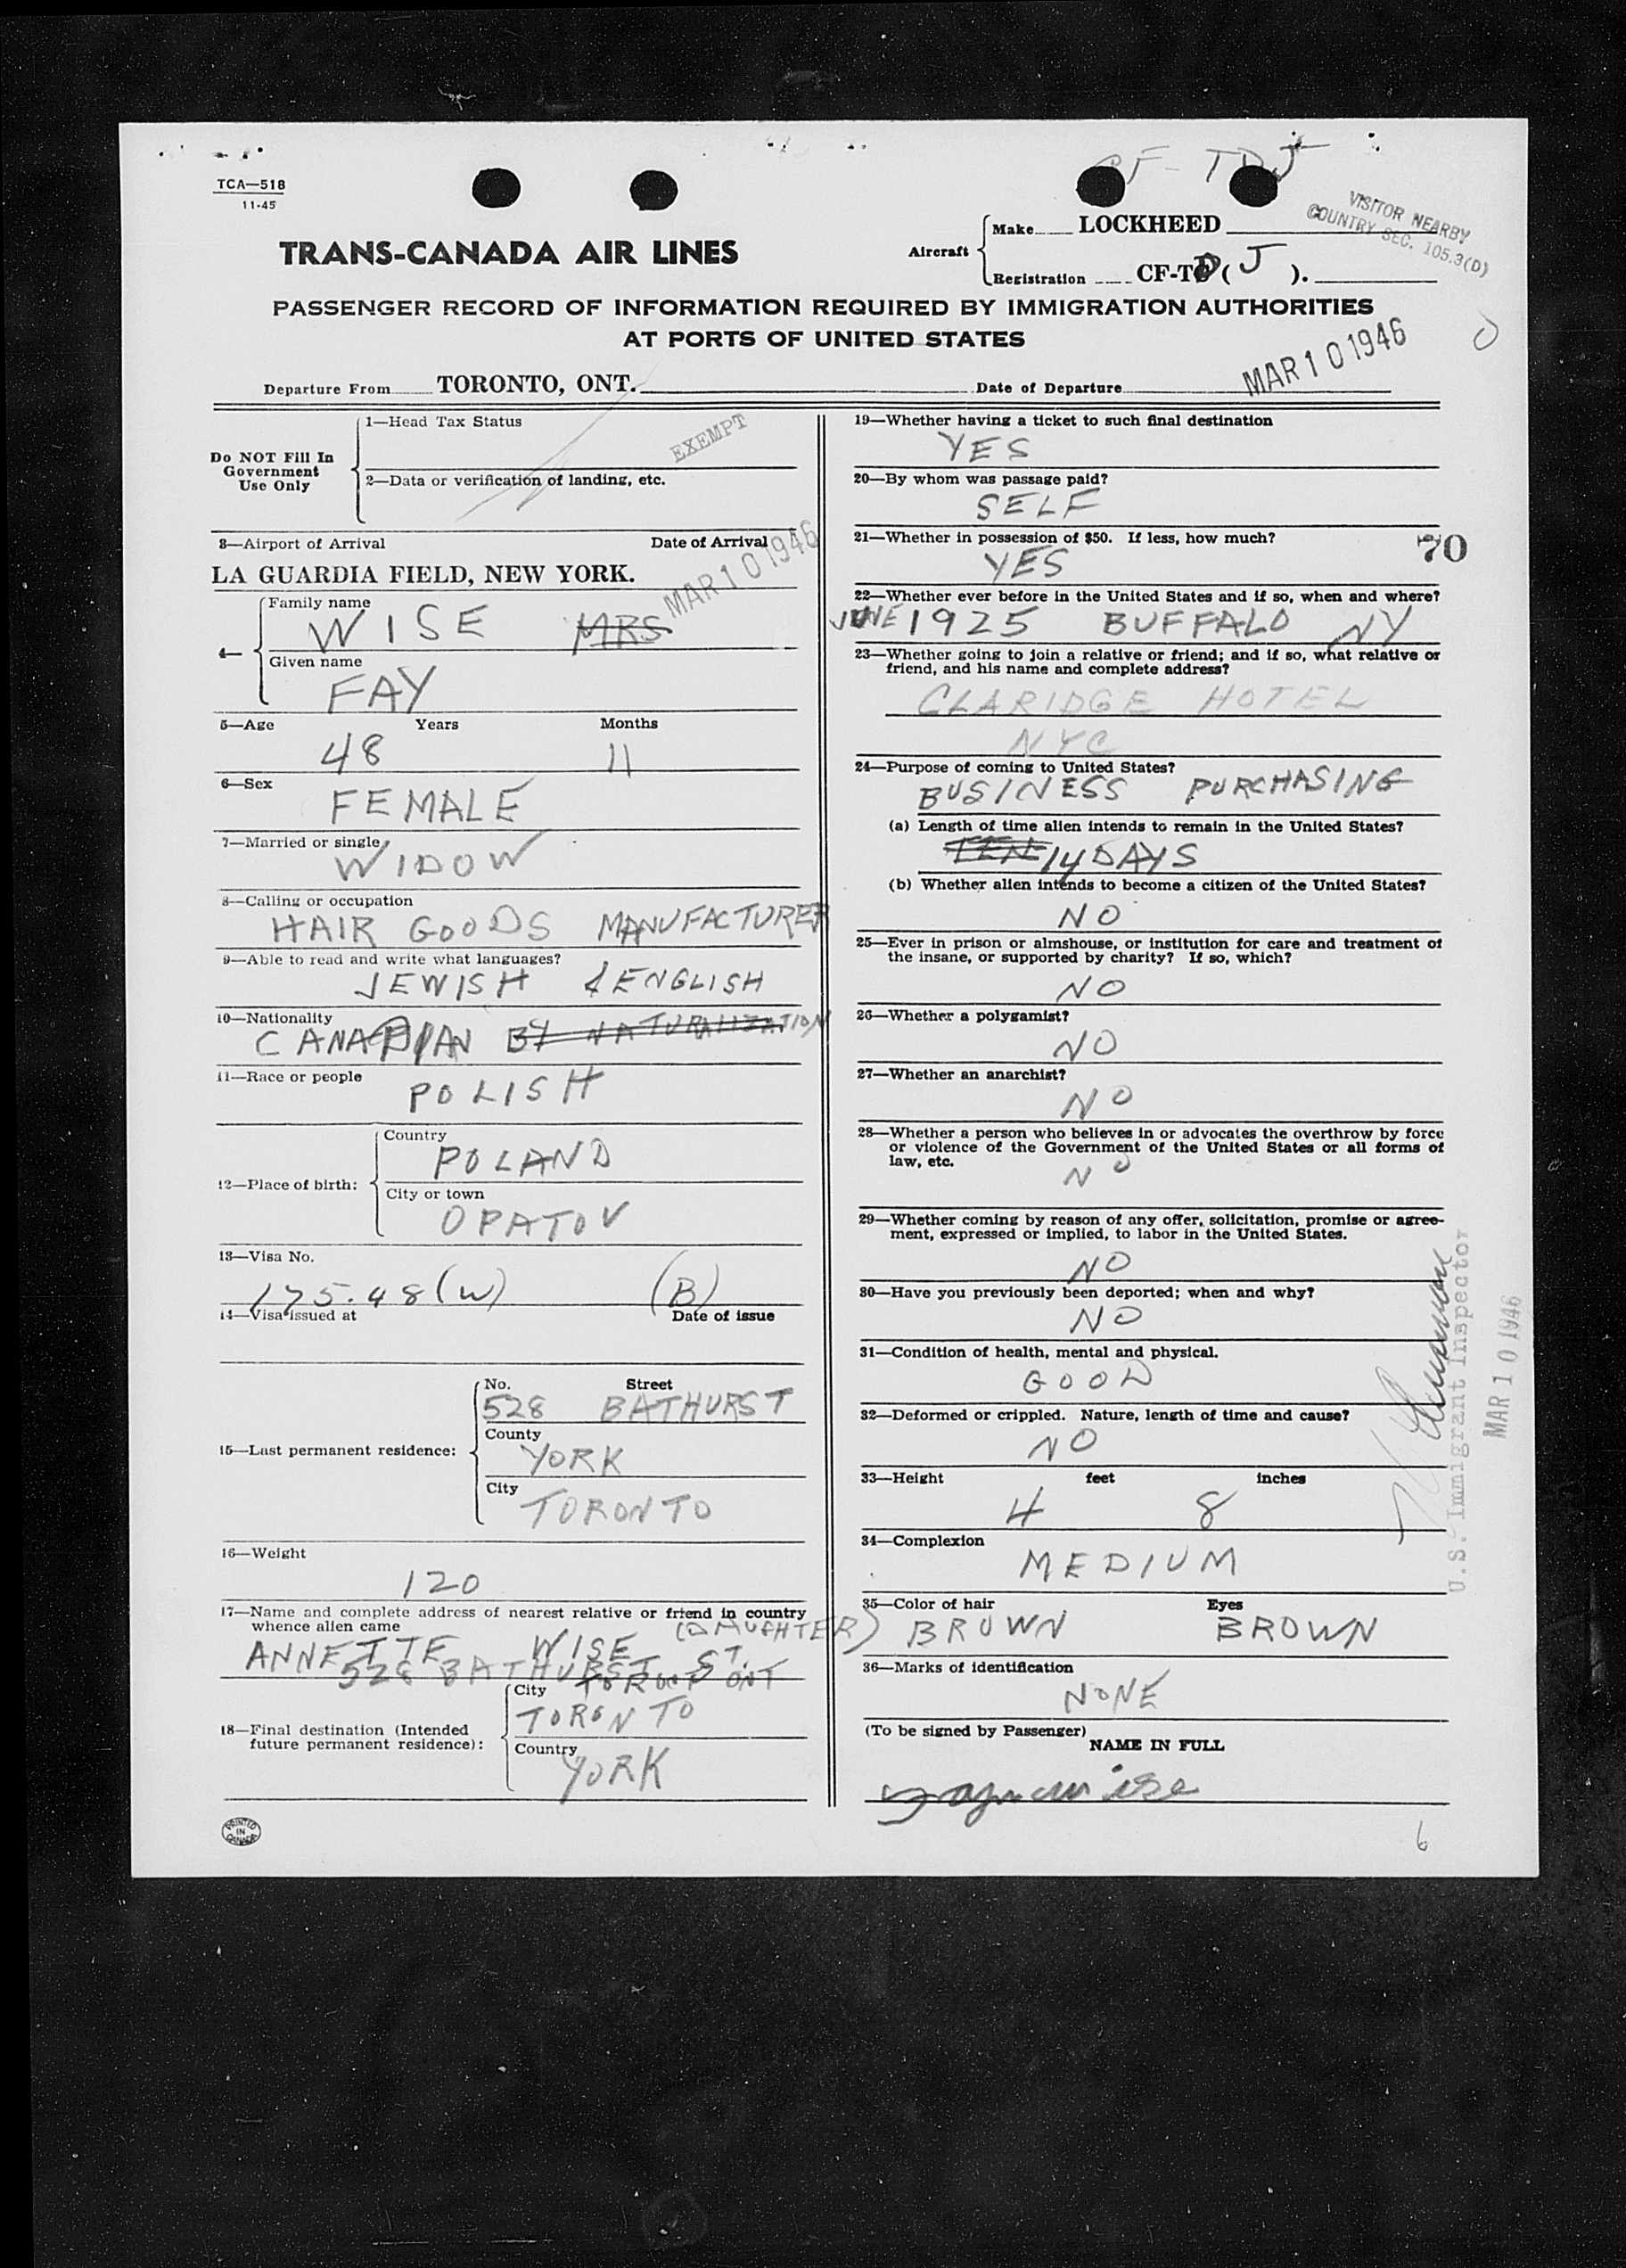 CF-TDJ
TCA—518
11-45
VISITOR NEARBY
COUNTRY SEC. 105.3(D)
TRANS-CANADA AIR LINES
Aircraft
Make LOCKHEED
Registration CF-TD ( J ).
PASSENGER RECORD OF INFORMATION REQUIRED BY IMMIGRATION AUTHORITIES
AT PORTS OF UNITED STATES
Departure From TORONTO, ONT. Date of Departure MAR 10 1946
Do NOT Fill In
Government
Use Only
1—Head Tax Status
EXEMPT
2—Data or verification of landing, etc.
3—Airport of Arrival Date of Arrival
LA GUARDIA FIELD, NEW YORK. MAR 10 1946
4—
Family name
WISE MRS
Given name
FAY
5—Age Years Months
48 11
6—Sex
FEMALE
7—Married or single
WIDOW
8—Calling or occupation
HAIR GOODS MANUFACTURER
9—Able to read and write what languages?
JEWISH & ENGLISH
10—Nationality
CANADIAN BY NATURALIZATION
11—Race or people
POLISH
12—Place of birth:
Country
POLAND
City or town
OPATOV
13—Visa No.
175.48(W) (B)
14—Visa issued at Date of issue
15—Last permanent residence:
No. Street
528 BATHURST
County
YORK
City
TORONTO
16—Weight
120
17—Name and complete address of nearest relative or friend in country
whence alien came
(DAUGHTER)
ANNETTE WISE
528 BATHURST ST.
TORONTO ONT
18—Final destination (Intended
future permanent residence):
City
TORONTO
Country
YORK
PRINTED
IN
CANADA
19—Whether having a ticket to such final destination
YES
20—By whom was passage paid?
SELF
21—Whether in possession of $50. If less, how much?
70
YES
22—Whether ever before in the United States and if so, when and where?
JUNE 1925 BUFFALO NY
23—Whether going to join a relative or friend; and if so, what relative or
friend, and his name and complete address?
CLARIDGE HOTEL
NYC
24—Purpose of coming to United States?
BUSINESS PURCHASING
(a) Length of time alien intends to remain in the United States?
TEN 14 DAYS
(b) Whether alien intends to become a citizen of the United States?
NO
25—Ever in prison or almshouse, or institution for care and treatment of
the insane, or supported by charity? If so, which?
NO
26—Whether a polygamist?
NO
27—Whether an anarchist?
NO
28—Whether a person who believes in or advocates the overthrow by force
or violence of the Government of the United States or all forms of
law, etc.
NO
29—Whether coming by reason of any offer, solicitation, promise or agree-
ment, expressed or implied, to labor in the United States.
NO
30—Have you previously been deported; when and why?
NO
31—Condition of health, mental and physical.
GOOD
32—Deformed or crippled. Nature, length of time and cause?
NO
33—Height feet inches
4 8
34—Complexion
MEDIUM
35—Color of hair Eyes
BROWN BROWN
36—Marks of identification
NONE
(To be signed by Passenger)
NAME IN FULL
U.S. Immigrant Inspector
MAR 10 1946
6